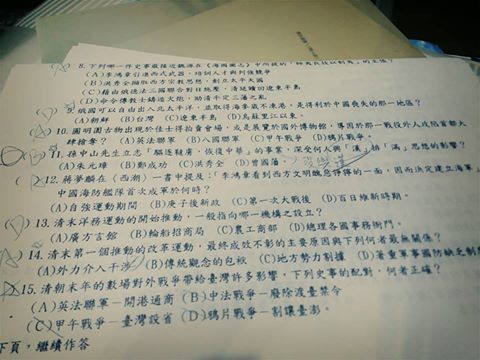 8.下列哪一件史事最接近魏源在《海國圖志》中所提的「師夷長技以制夷」的主張？
(A)李鴻章引進西式武器、培訓人才與列強競爭
(B)洪秀全擷取西方宗教思想，創立太平天國
(C)藉由俄德法三國聯合對日施壓，清廷贖回遼東半島
(D)命令傳教士鑄造火炮，助清平定三藩之亂
9.俄國可以自由出入北太平洋，並取得海參崴不凍港，是得利於中國喪失的那一地區？
(A)朝鮮 (B)台灣 (C)遼東半島 (D)烏蘇里江以東。
10.圓明園古物出現於佳士得拍賣會場，或是展覽於國外博物館，導因於那一戰役外人攻陷首都大
肆搶奪？ (A)英法聯軍 (B)八國聯軍 (C)甲午戰爭 (D)鴉片戰爭。
11.孫中山先生立志「驅逐韃虜，恢復中華」的事業，深受何人與「漢」「滿」思想的影響？
(A)朱元璋 (B)鄭成功 (C)洪秀全 (D)曾國藩。
12.蔣夢麟在《西潮》一書中提及：「李鴻章看到西方文明醜惡猙獰的一面，因而決定建立海軍」
中國海防艦隊首次成軍於何時？
(A)自強運動期間 (B)庚子後新政 (C)第一次大戰後 (D)百日維新時期。
13.清末洋務運動的開始推動，一般指向哪一機構之設立？
(A)廣方言館 (B)輪船招商局 (C)農工商部 (D)總理各國事務衙門。
14.清末第一個推動的改革運動，最終成效不彰的主要原因與下列何者最無關係？
(A)外力介入干涉 (B)傳統觀念的包袱 (C)地方勢力割據 (D)著重軍事國防缺乏制
15.清朝末年的數場對外戰爭帶給臺灣許多影響，下列史事的配對，何者正確？
(A)英法聯軍－開港通商 (B)中法戰爭－廢除渡臺禁令
(C)甲午戰爭－臺灣設省 (D)鴉片戰爭－割讓臺澎。
下頁，繼續作答